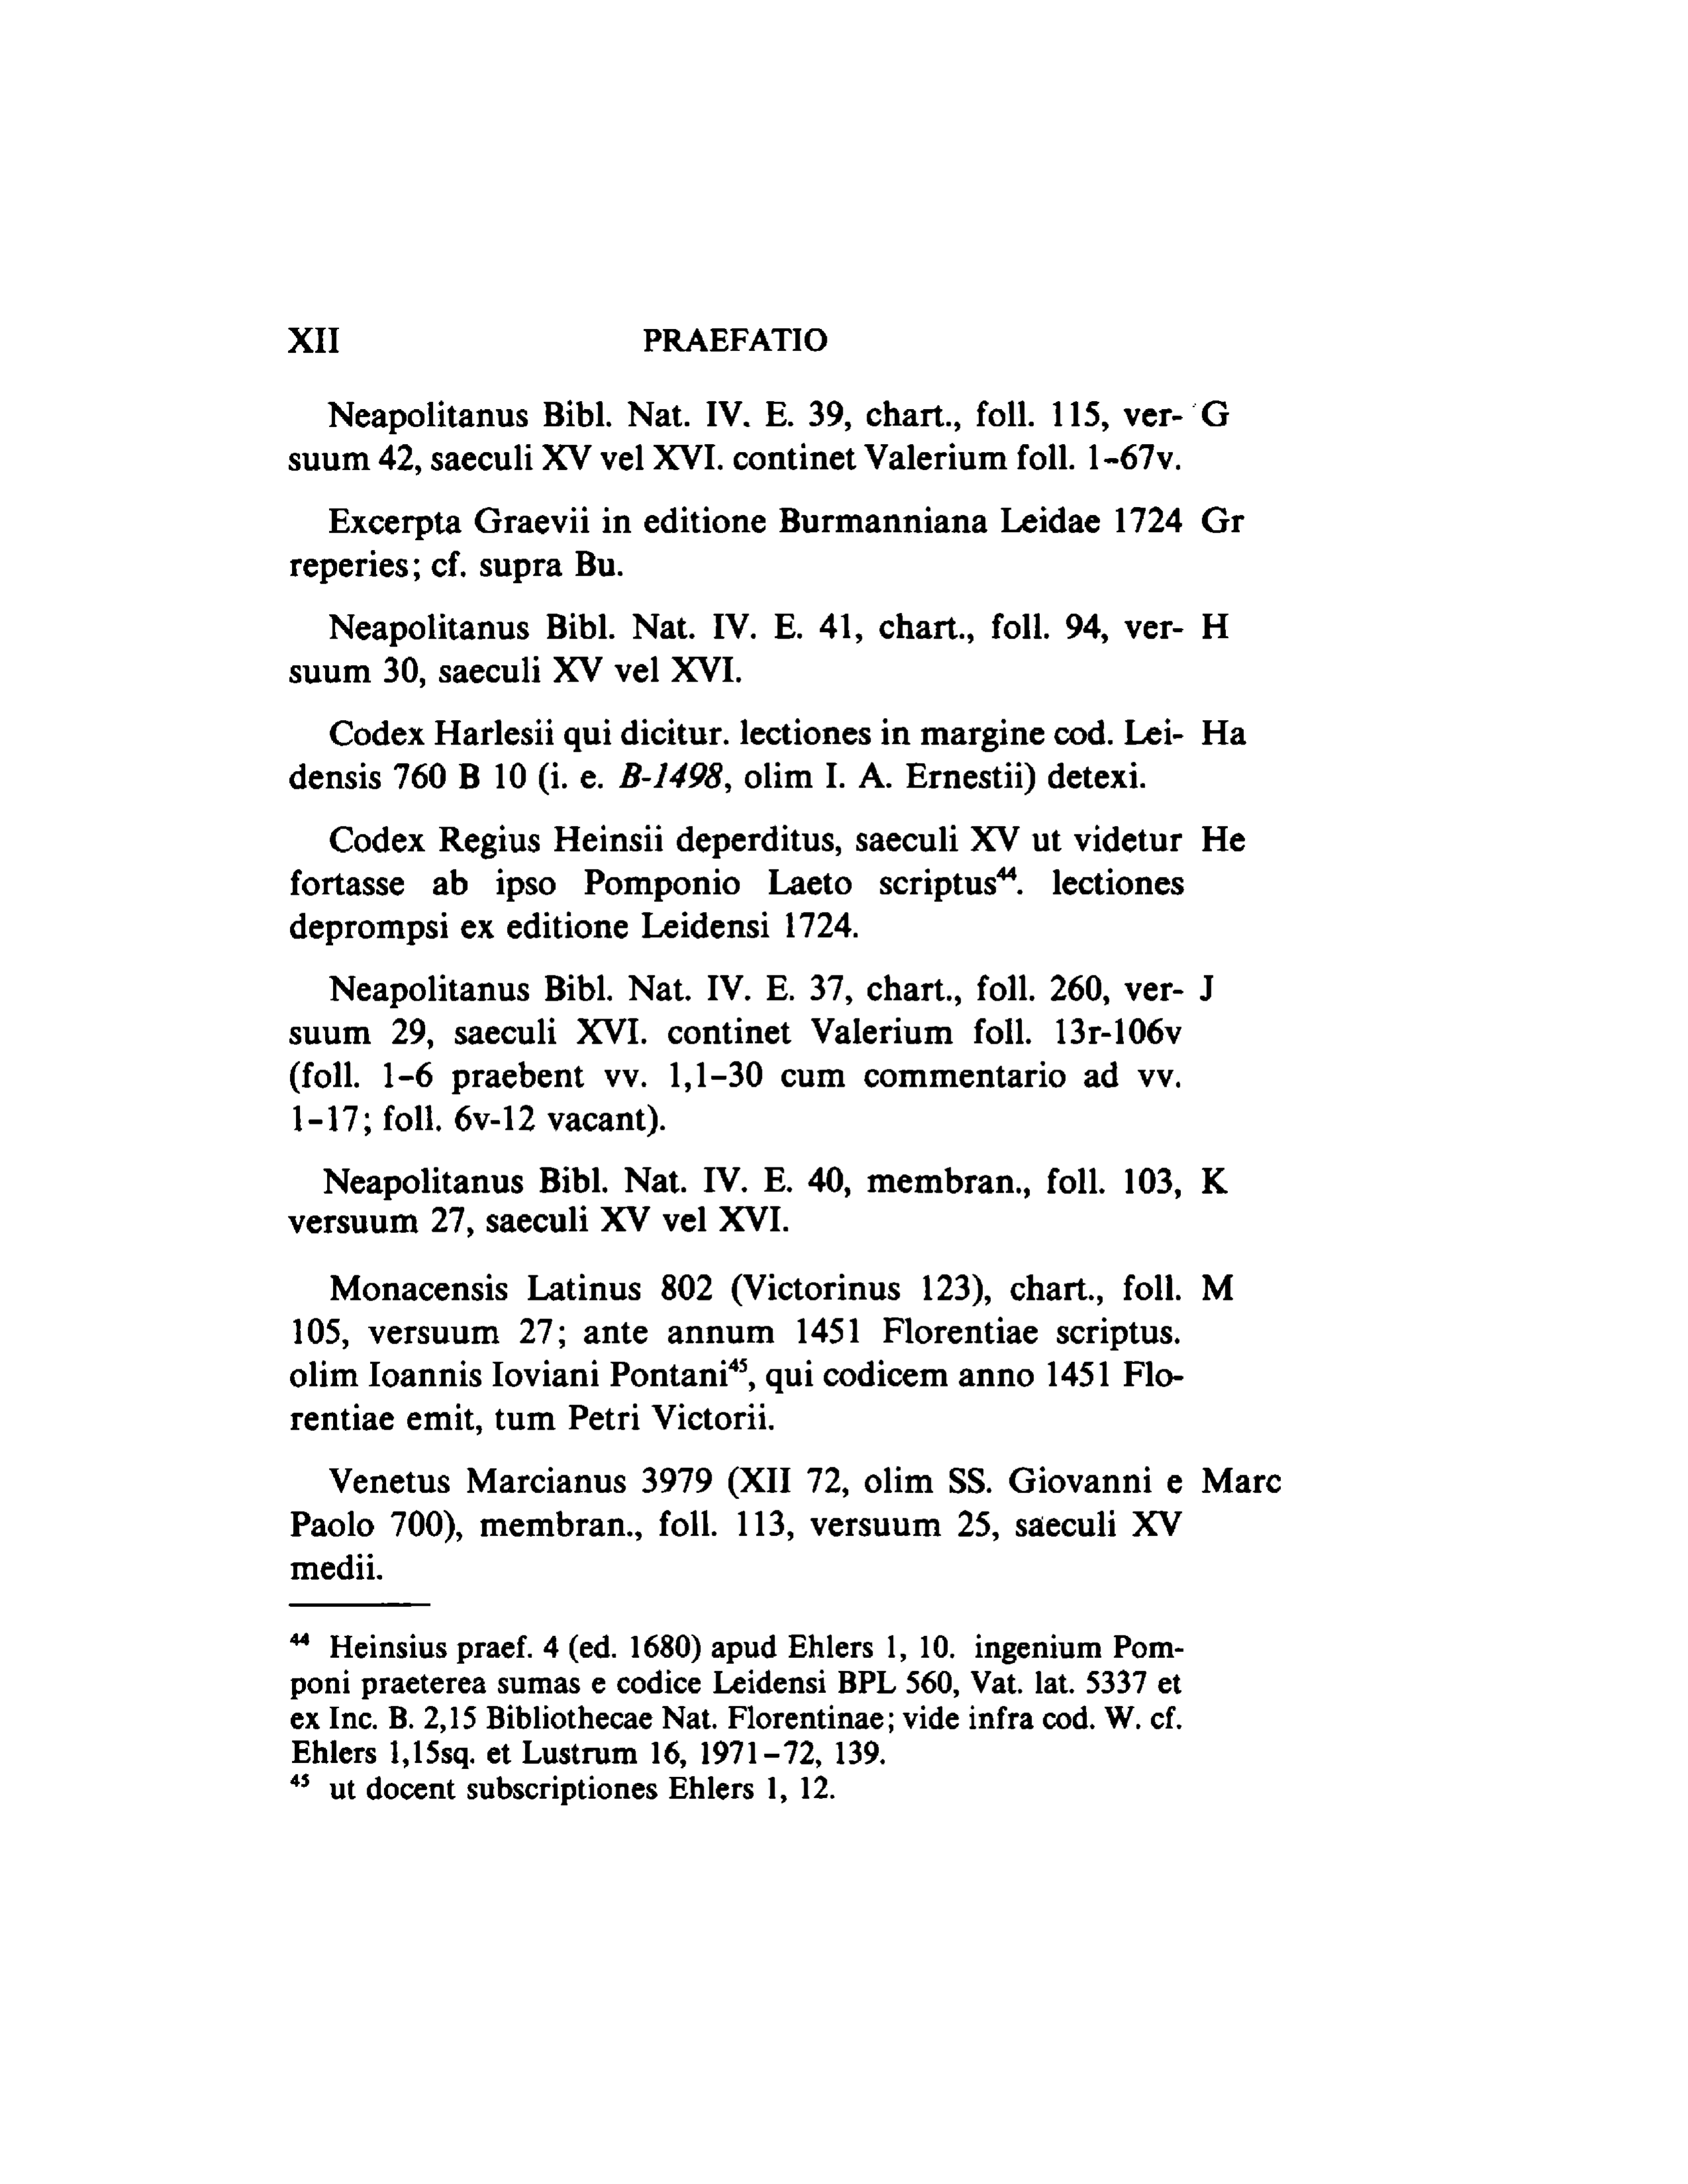 XII PRAEFATIO
Neapolitanus Bibl. Nat. IV. E. 39, chart., foll. 115, ver- G
suum 42, saeculi XV vel XVI. continet Valerium foll. 1–67v.
Excerpta Graevii in editione Burmanniana Leidae 1724 Gr
reperies; cf. supra Bu.
Neapolitanus Bibl. Nat. IV. E. 41, chart., foll. 94, ver- H
suum 30, saeculi XV vel XVI.
Codex Harlesii qui dicitur. lectiones in margine cod. Lei- Ha
densis 760 B 10 (i. e. B-1498, olim I. A. Ernestii) detexi.
Codex Regius Heinsii deperditus, saeculi XV ut videtur He
fortasse ab ipso Pomponio Laeto scriptus⁴⁴. lectiones
deprompsi ex editione Leidensi 1724.
Neapolitanus Bibl. Nat. IV. E. 37, chart., foll. 260, ver- J
suum 29, saeculi XVI. continet Valerium foll. 13r-106v
(foll. 1–6 praebent vv. 1,1–30 cum commentario ad vv.
1–17; foll. 6v-12 vacant).
Neapolitanus Bibl. Nat. IV. E. 40, membran., foll. 103, K
versuum 27, saeculi XV vel XVI.
Monacensis Latinus 802 (Victorinus 123), chart., foll. M
105, versuum 27; ante annum 1451 Florentiae scriptus.
olim Ioannis Ioviani Pontani⁴⁵, qui codicem anno 1451 Flo-
rentiae emit, tum Petri Victorii.
Venetus Marcianus 3979 (XII 72, olim SS. Giovanni e Marc
Paolo 700), membran., foll. 113, versuum 25, saeculi XV
medii.
⁴⁴ Heinsius praef. 4 (ed. 1680) apud Ehlers 1, 10. ingenium Pom-
poni praeterea sumas e codice Leidensi BPL 560, Vat. lat. 5337 et
ex Inc. B. 2,15 Bibliothecae Nat. Florentinae; vide infra cod. W. cf.
Ehlers 1,15sq. et Lustrum 16, 1971–72, 139.
⁴⁵ ut docent subscriptiones Ehlers 1, 12.